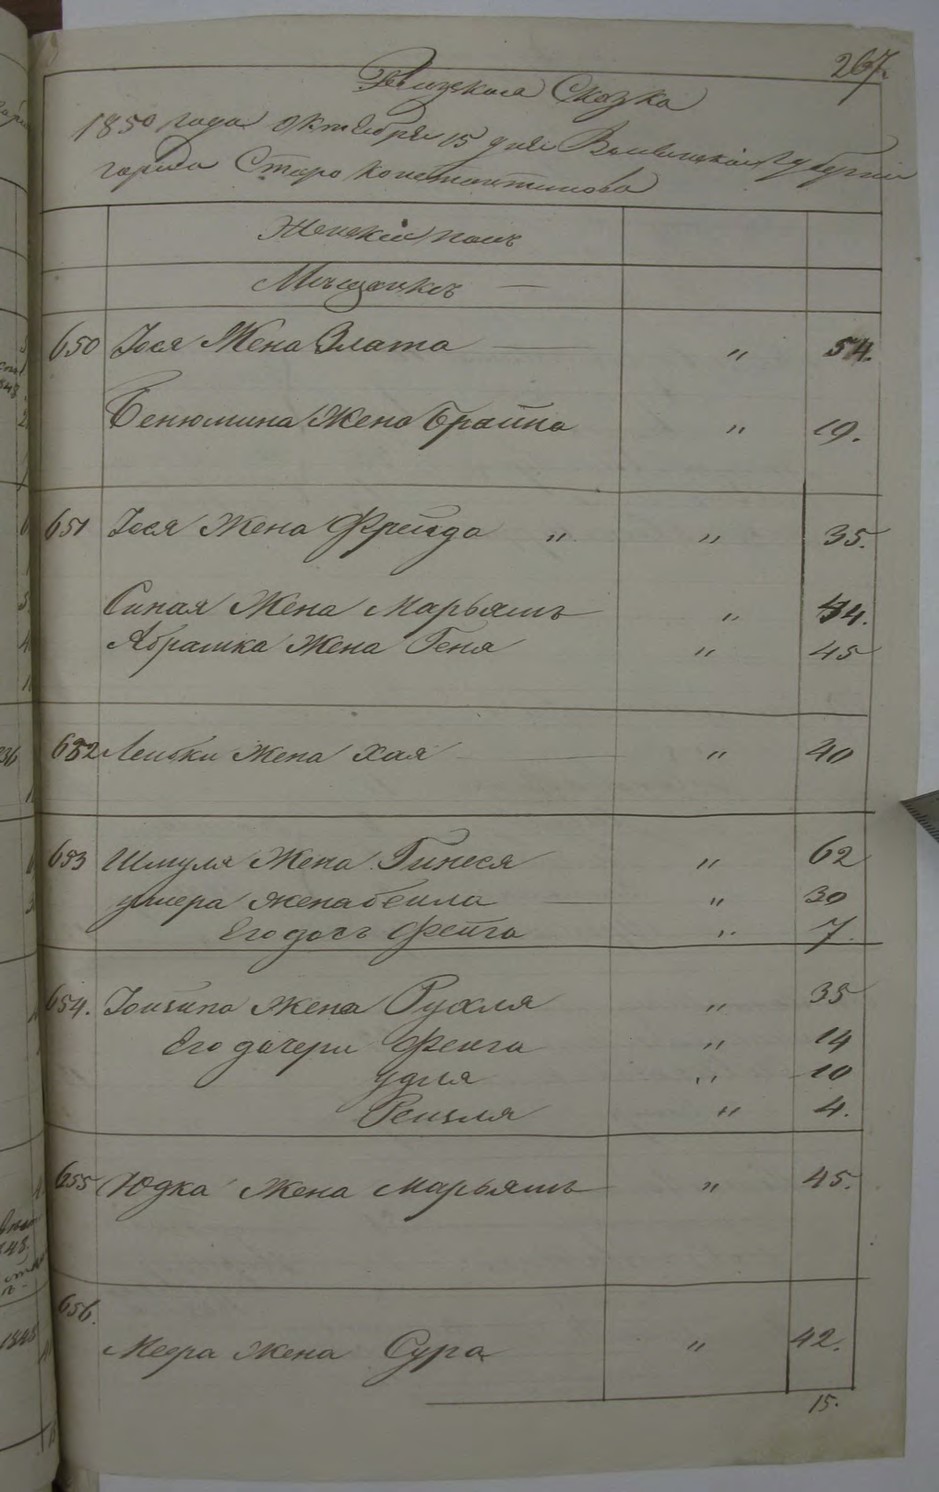 267.
Ревизская Сказка
1850 года октября 15 дня Волынской губернии
города Старо Константинова
Женский полъ
Мещанкъ —
650 Іося Жена Злата — " 54.
Бенюмина Жена Брайна " 19.
651 Іося Жена Фрейда " " 35.
Синая Жена Марьямъ " 44.
Абрамка Жена Геня " 45
652 Лейбки Жена Хая — " 40
653 Шмуля Жена Гинеся " 62
Жена Бейла — " 30
Его дочь Фейга " 7.
654. Жена Рухля " 35
Его дочери Фейга " 14
Удля " 10
Рейзля " 4.
655 Юдка Жена Марьямъ " 45.
656.
Меера Жена Сура " 42.
15.